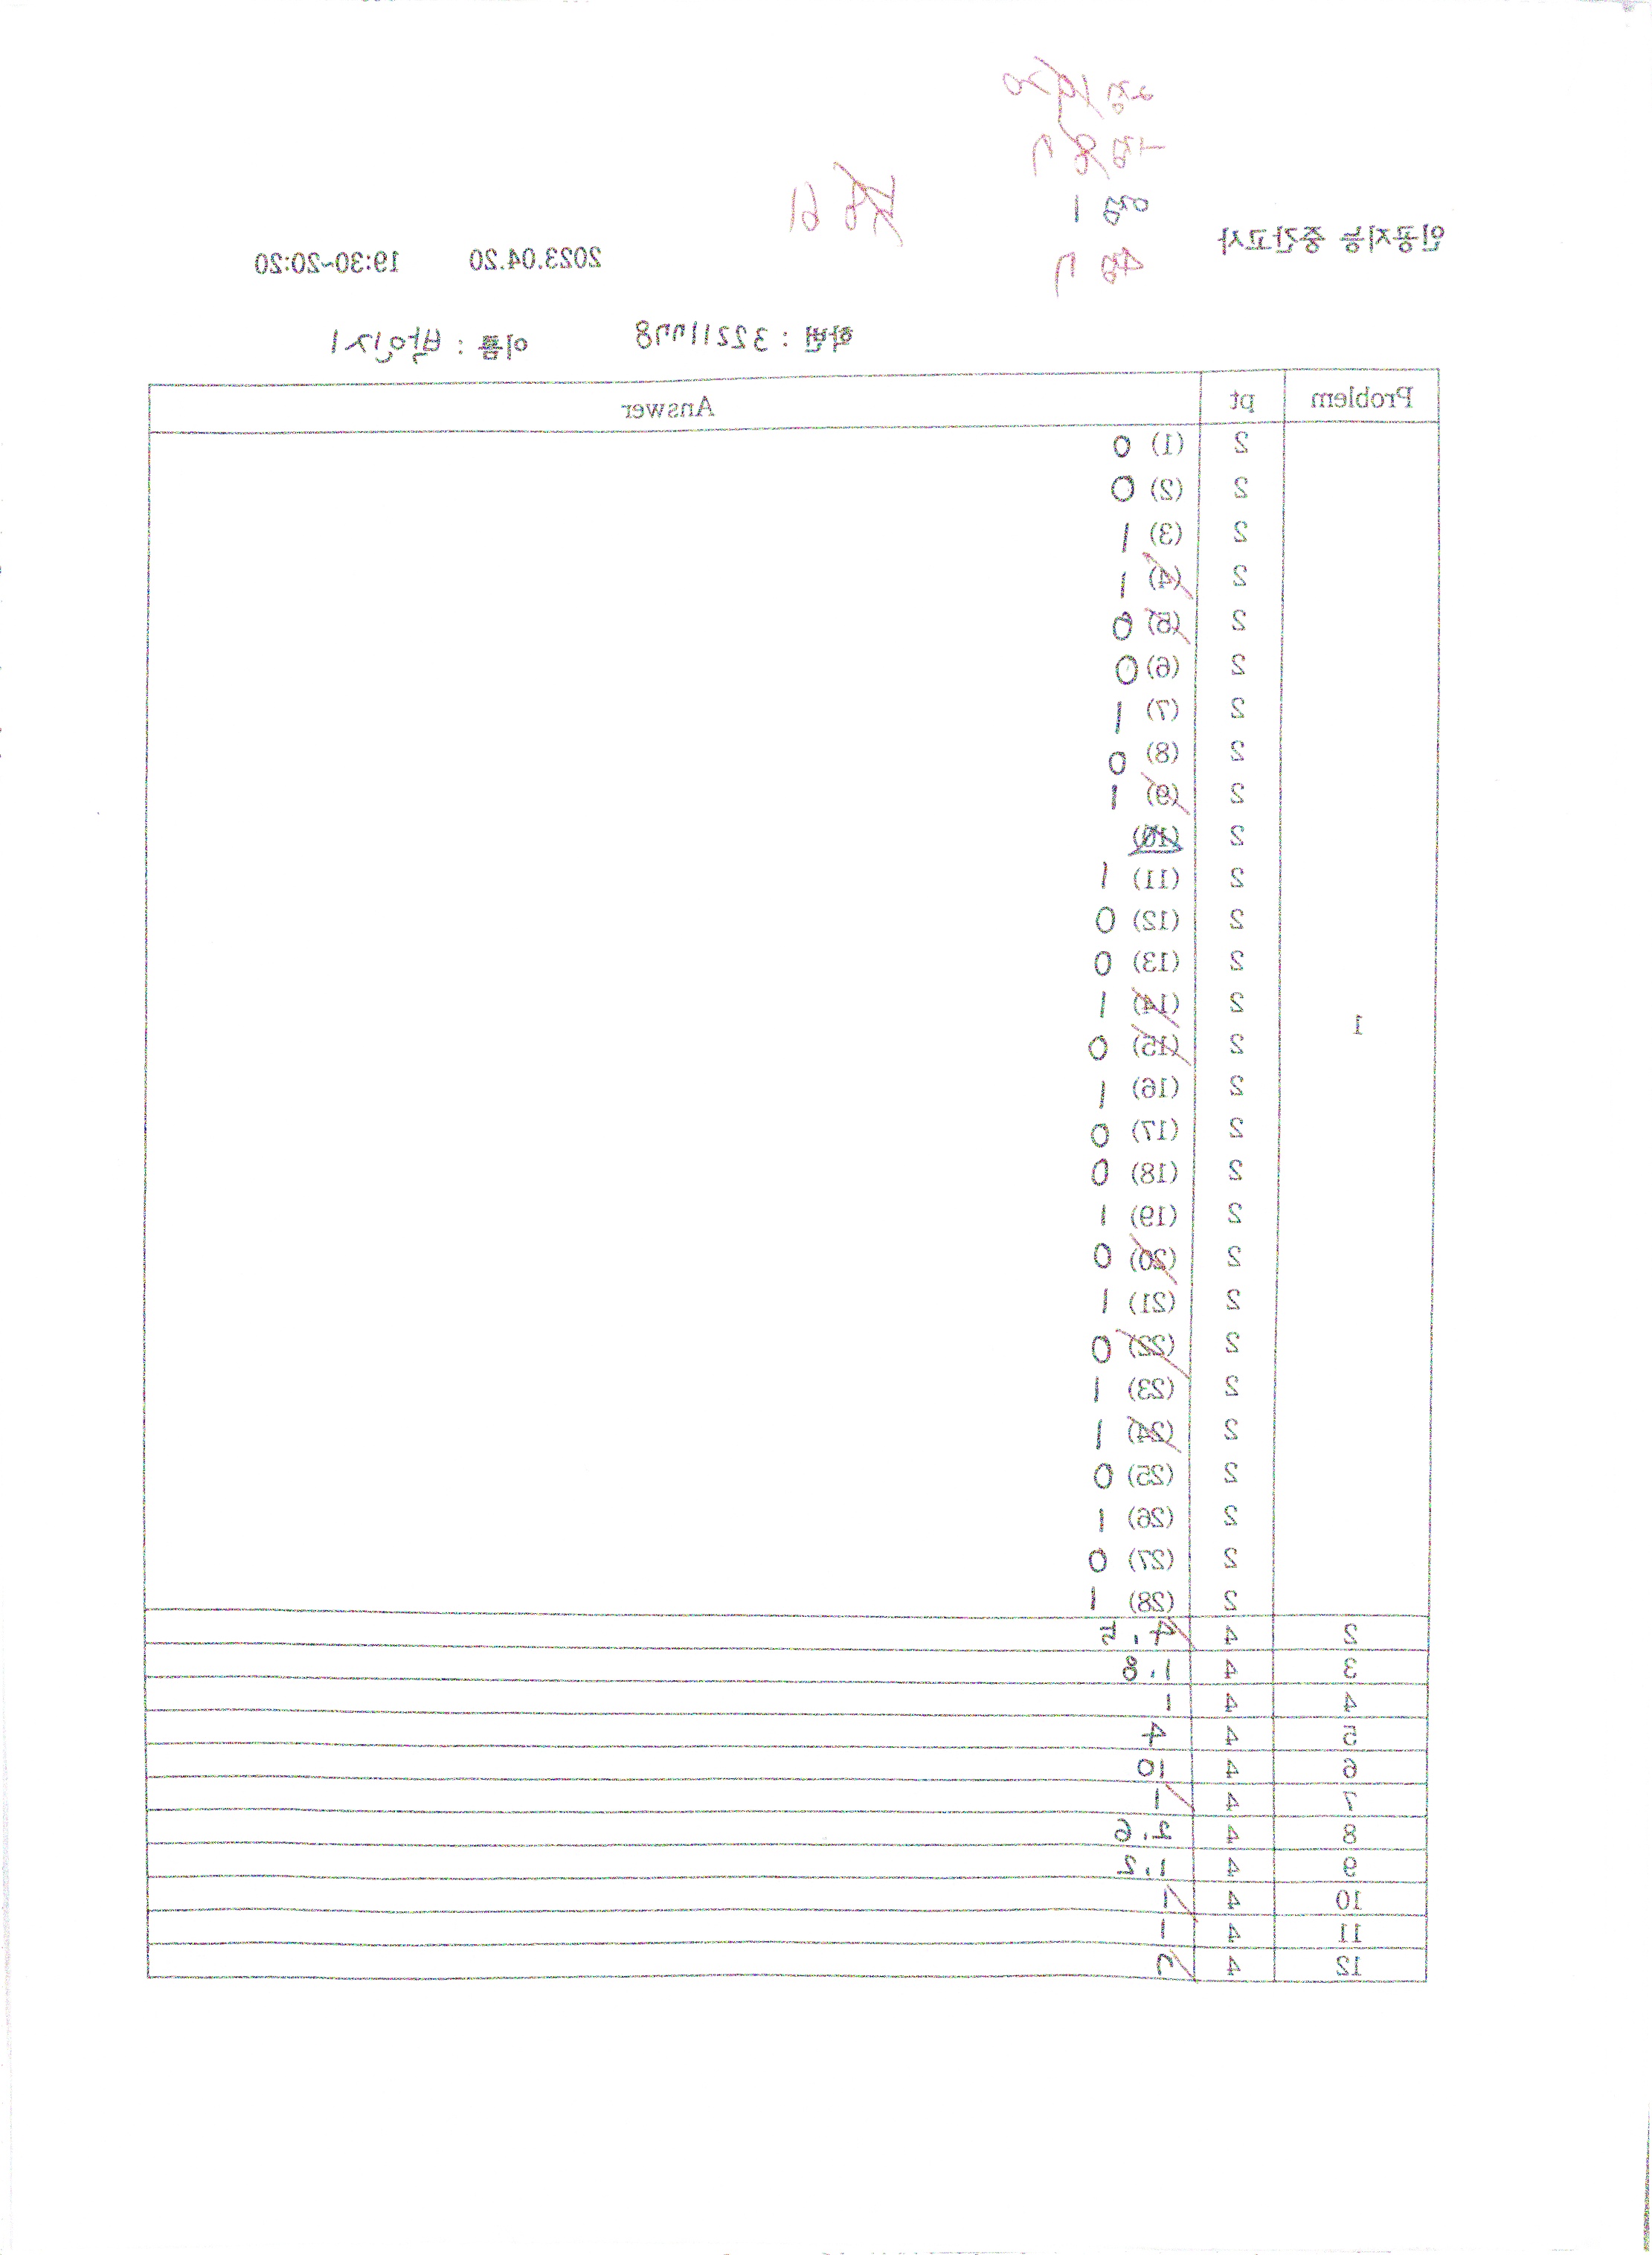 인공지능 중간고사
2023.04.20 19:30~20:20
학번 : 32211778 이름 : 박민지
Problem pt Answer
1
2 (1) 0
2 (2) 0
2 (3) 1
2 (4) 1
2 (5) 0
2 (6) 0
2 (7) 1
2 (8) 0
2 (9) 1
2 (10)
2 (11) 1
2 (12) 0
2 (13) 0
2 (14) 1
2 (15) 0
2 (16) 1
2 (17) 0
2 (18) 0
2 (19) 1
2 (20) 0
2 (21) 1
2 (22) 0
2 (23) 1
2 (24) 1
2 (25) 0
2 (26) 1
2 (27) 0
2 (28) 1
2 4 4.5
3 4 1.8
4 4 1
5 4 4
6 4 10
7 4 1
8 4 2.6
9 4 1.2
10 4 1
11 4 1
12 4 7